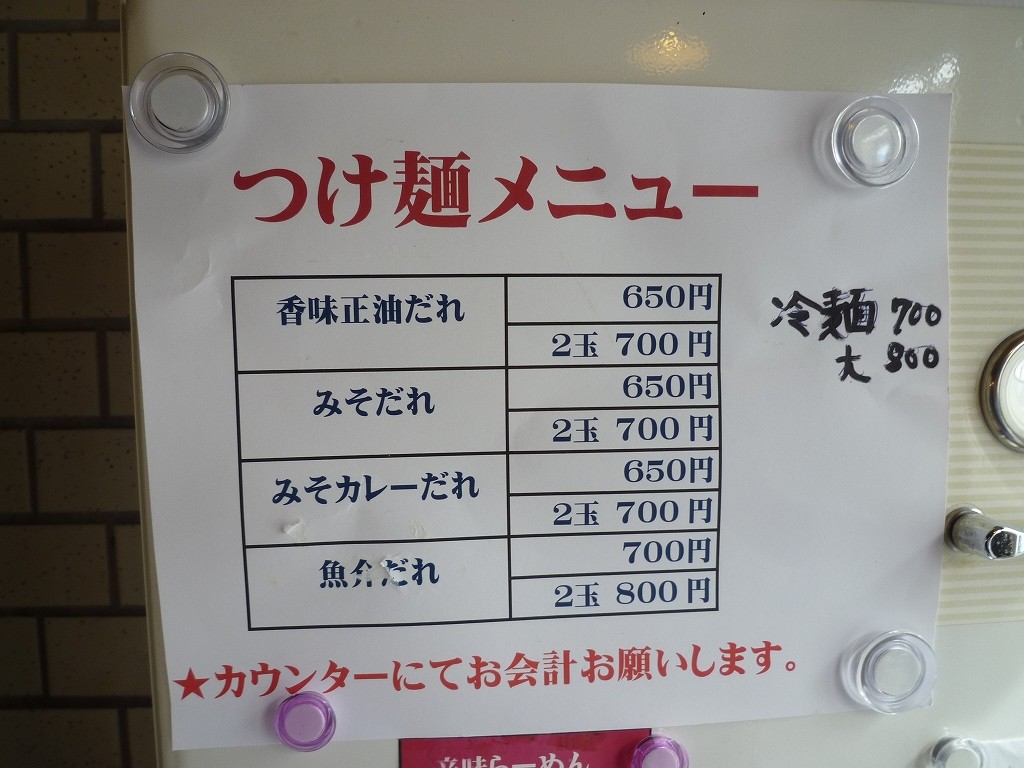 つけ麺メニュー
香味正油だれ 650円
2玉 700円
みそだれ 650円
2玉 700円
みそカレーだれ 650円
2玉 700円
魚介だれ 700円
2玉 800円
冷麺 700
大 800
★カウンターにてお会計お願いします。
辛味らーめん